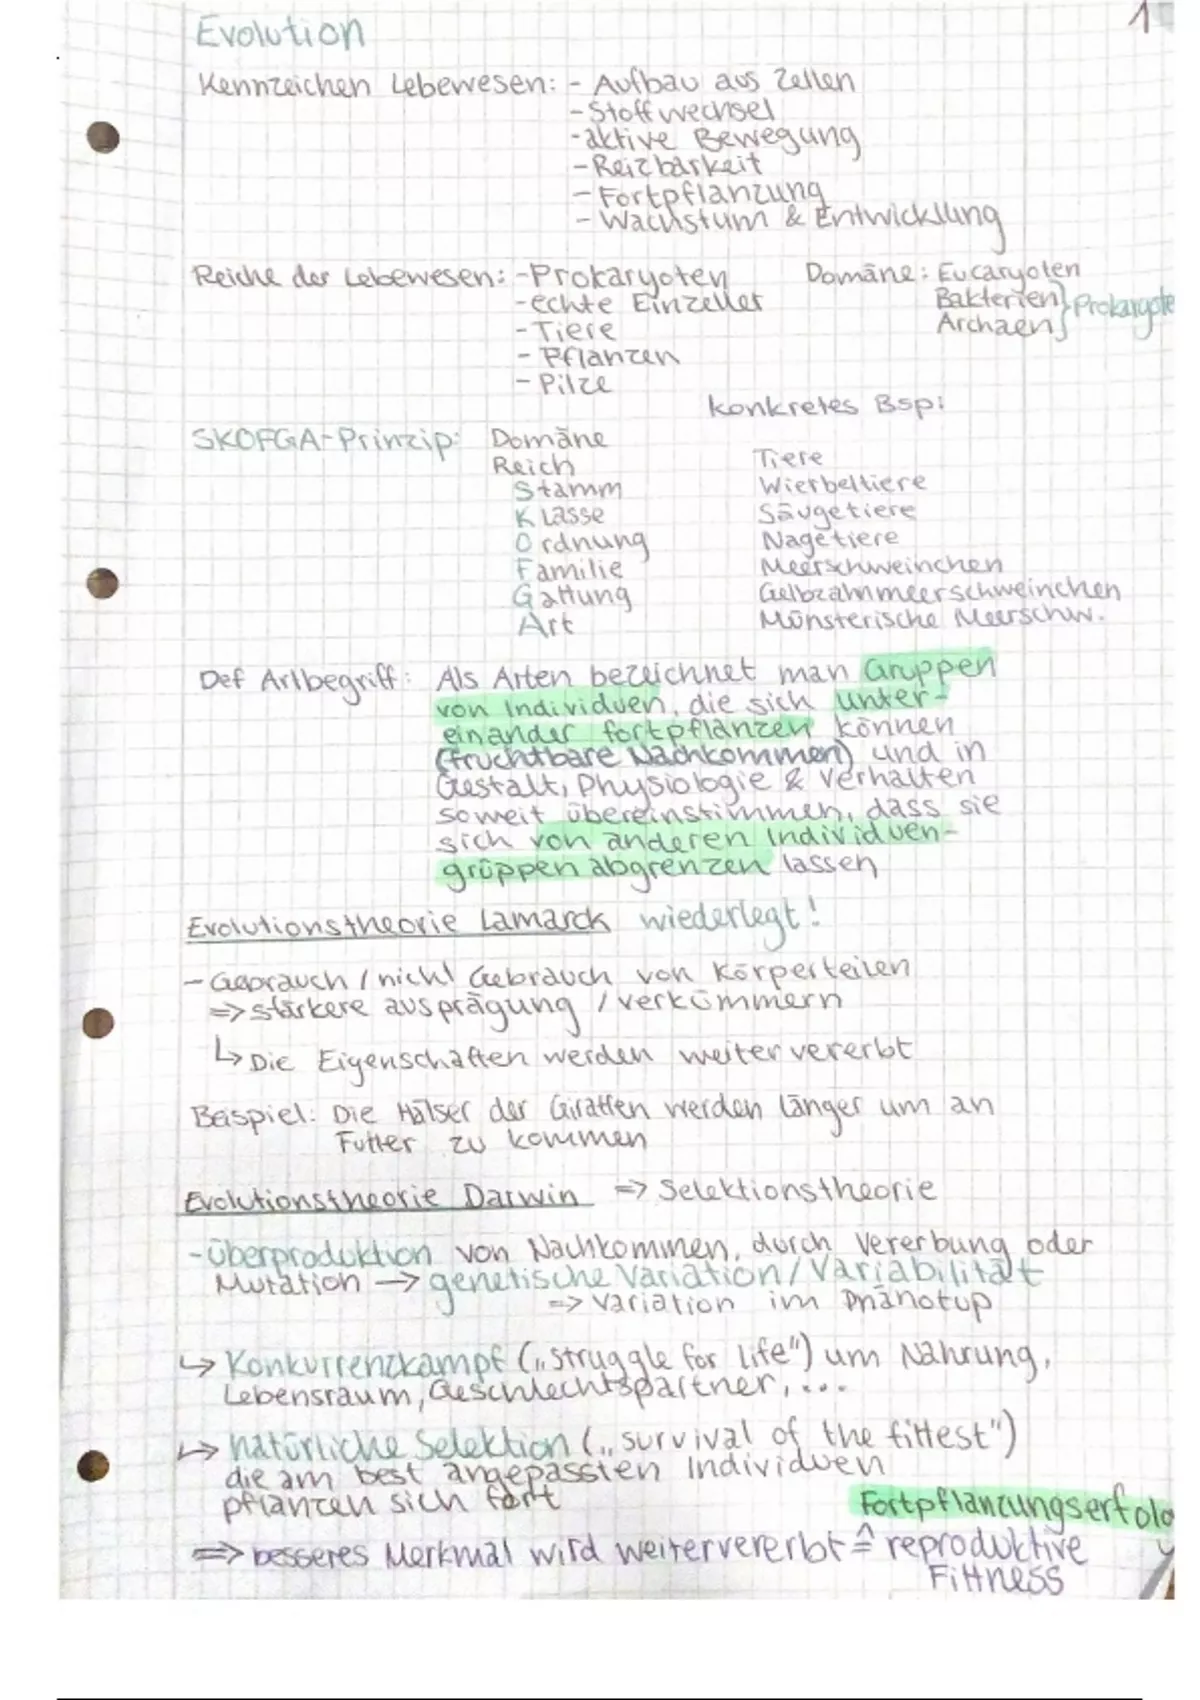 1
Evolution
Kennzeichen Lebewesen: - Aufbau aus Zellen
- Stoffwechsel
- aktive Bewegung
- Reizbarkeit
- Fortpflanzung
- Wachstum & Entwicklung
Reiche der Lebewesen: - Prokaryoten
- echte Einzeller
- Tiere
- Pflanzen
- Pilze
Domäne: Eucaryoten
Bakterien } Prokaryote
Archaen
konkretes Bsp:
SKOFGA-Prinzip: Domäne
Reich Tiere
Stamm Wierbeltiere
Klasse Säugetiere
Ordnung Nagetiere
Familie Meerschweinchen
Gattung Gelbzahnmeerschweinchen
Art Münsterische Meerschw.
Def Artbegriff: Als Arten bezeichnet man Gruppen
von Individuen, die sich unter-
einander fortpflanzen können
(fruchtbare Nachkommen) und in
Gestalt, Physiologie & Verhalten
soweit übereinstimmen, dass sie
sich von anderen Individuen-
gruppen abgrenzen lassen
Evolutionstheorie Lamarck wiederlegt!
- Gebrauch / nicht Gebrauch von Körperteilen
=> stärkere ausprägung / verkümmern
↳ Die Eigenschaften werden weiter vererbt
Beispiel: Die Hälser der Giraffen werden länger um an
Futter zu kommen
Evolutionstheorie Darwin => Selektionstheorie
- Überproduktion von Nachkommen, durch Vererbung oder
Mutation → genetische Variation / Variabilität
=> Variation im Phänotyp
↳ Konkurrenzkampf („struggle for life") um Nahrung,
Lebensraum, Geschlechtspartner, ...
↳ natürliche Selektion („survival of the fittest")
die am best angepassten Individuen
pflanzen sich fort
Fortpflanzungserfolg
=> besseres Merkmal wird weitervererbt ≙ reproduktive
Fittness